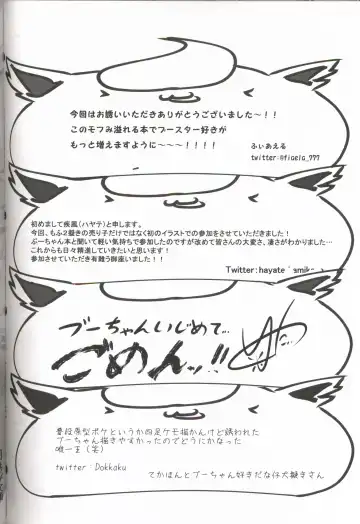 今回はお誘いいただきありがとうございました～！！
このモフみ溢れる本でブースター好きが
もっと増えますように～～～！！！！
ふぃあえる
twitter:@fiaela_777
初めまして疾風(ハヤテ)と申します。
今回、もふ2擬きの売り子だけではなく初のイラストでの参加をさせていただきました！
ぶーちゃん本と聞いて軽い気持ちで参加したのですが改めて皆さんの大変さ、凄さがわかりました…
これからも日々精進していきたいと思います！
参加させていただき有難う御座いました！！
Twitter:hayate
ブーちゃんいじめて…
ごめんッ!!
普段原型ポケというか四足ケモ描かんけど誘われた
ブーちゃん描きやすかったのでどうにかなった
唯一王(笑)
twitter:Dokkaku
てかほんとブーちゃん好きだな仔犬擬きさん